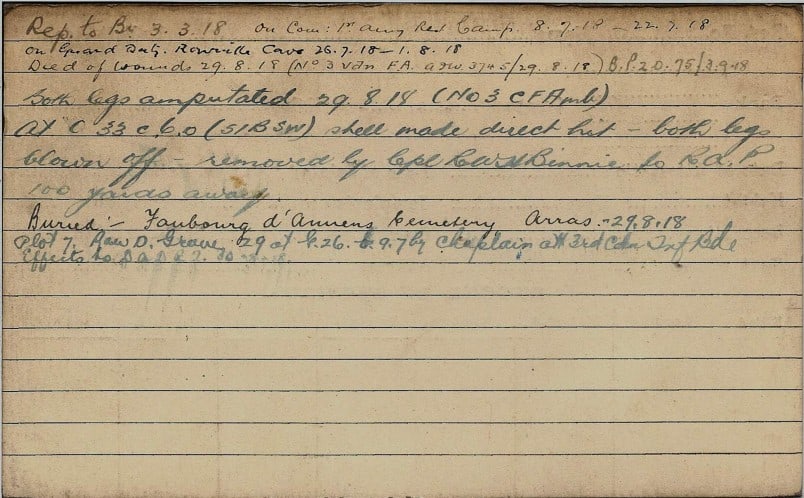 Rep. to Bn 3.3.18 on Com: 1st Army Rest Camp. 8.7.18 — 22.7.18
on Guard Duty. Ronville Cave 26.7.18 — 1.8.18
Died of Wounds 29.8.18 (No 3 Cdn F.A. a3W.3745/29.8.18) B.P.2.D.75/3.9.18
Both legs amputated 29.8.18 (No 3 CFAmb)
At O 33 c 6.0 (51B SW) shell made direct hit — both legs
blown off — removed by Cpl Binnie to R.A.P.
100 yards away
Buried:- Faubourg d'Amiens Cemetery Arras. - 29.8.18
Plot 7. Row D. Grave 29 at G.26.b.9.7 by Chaplain att 3rd Cdn Inf Bde
Effects to